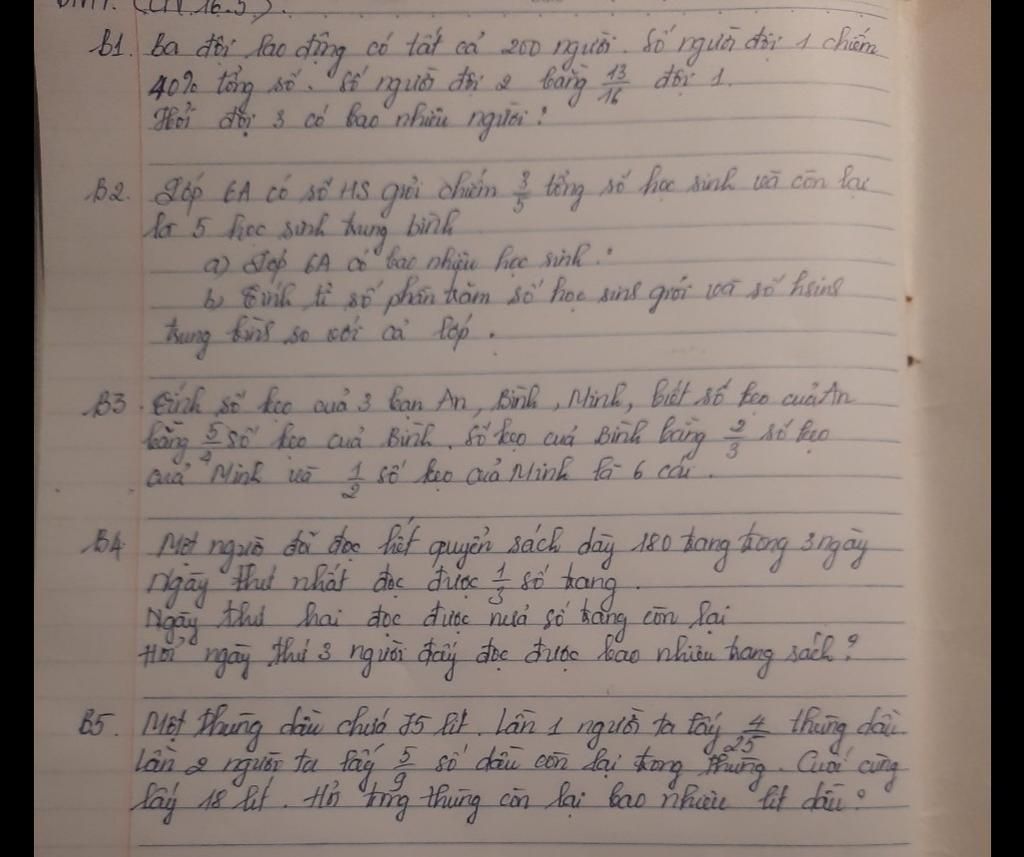 (CN 16.5).
B1. Ba đội lao động có tất cả 200 người. Số người đội 1 chiếm
40% tổng số. Số người đội 2 bằng 13/16 đội 1.
Hỏi đội 3 có bao nhiêu người?
B2. Lớp 6A có số HS giỏi chiếm 3/5 tổng số học sinh và còn lại
là 5 học sinh trung bình
a) Lớp 6A có bao nhiêu học sinh?
b) Tính tỉ số phần trăm số học sinh giỏi và số hsinh
trung bình so với cả lớp.
B3 Tính số kẹo của 3 bạn An, Bình, Minh, biết số kẹo của An
bằng 5/4 số kẹo của Bình. Số kẹo của Bình bằng 2/3 số kẹo
của Minh và 1/2 số kẹo của Minh là 6 cái.
B4 Một người đã đọc hết quyển sách dày 180 trang trong 3 ngày
Ngày thứ nhất đọc được 1/3 số trang.
Ngày thứ hai đọc được nửa số trang còn lại
Hỏi ngày thứ 3 người đấy đọc được bao nhiêu trang sách?
B5. Một thùng dầu chứa 75 lít. Lần 1 người ta lấy 4/25 thùng dầu.
Lần 2 người ta lấy 5/9 số dầu còn lại trong thùng. Cuối cùng
lấy 18 lít. Hỏi trong thùng còn lại bao nhiêu lít dầu?